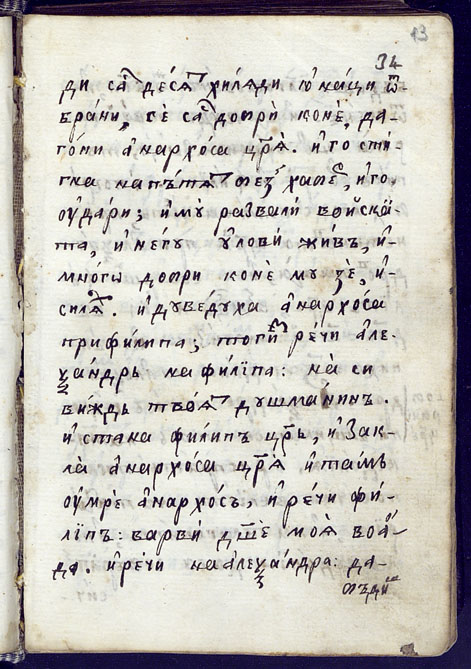 13
34
ди са деся хиляди юнаци ѿ-
брани, се са добри коне, да-
гони анархоса црꙗ. и го сти-
гна на
и го,
ѹдари; и мꙋ развали войска-
та, и него ꙋлови живъ, и-
многѡ добри коне мꙋ зе, и-
и дꙋведꙋха анархоса
при филипа; тоги речи але-
ѯандръ на филїпа: на си
виждъ твоя душманинъ.
и стана филипъ црь, и зак-
ла анархоса црꙗ и тамъ
ѹмре анархосъ, и речи фи-
липъ: варви дще моя воа-
да. и речи на алеѯандра: да-